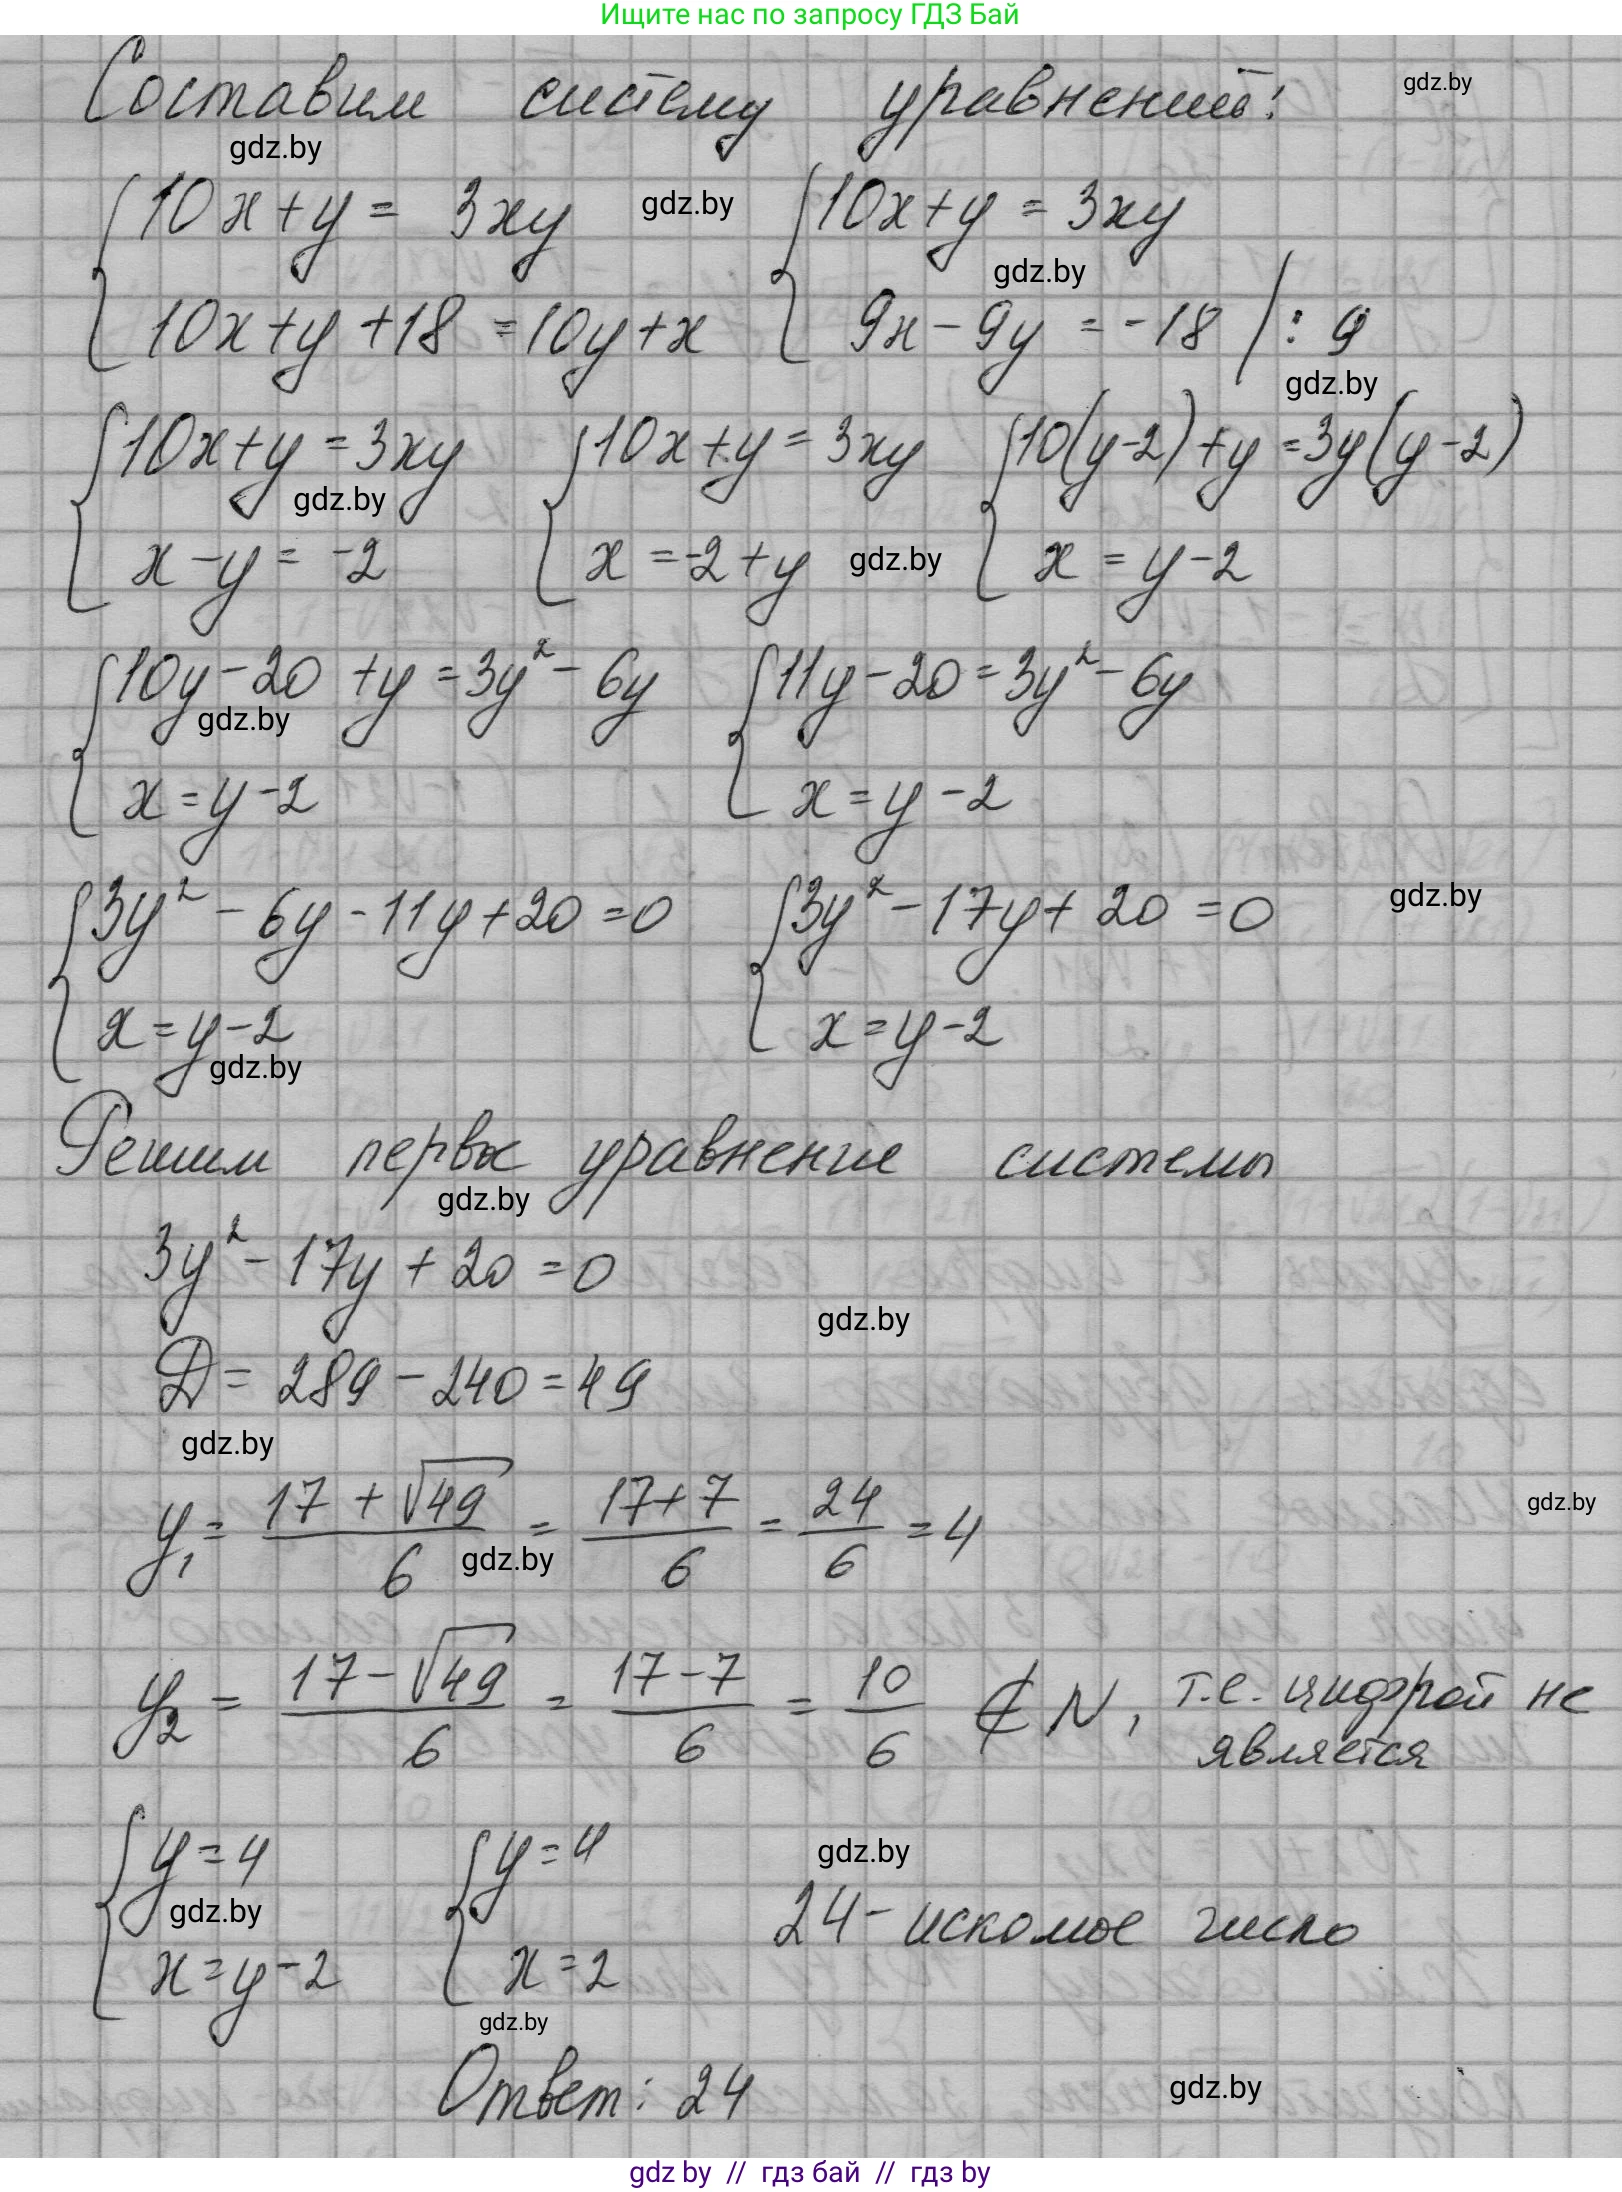 Ищите нас по запросу ГДЗ Бай
Составим систему уравнений: gdz.by
gdz.by
{10x+y = 3xy gdz.by {10x+y = 3xy
gdz.by
10x+y+18 = 10y+x 9x-9y = -18 | : 9
gdz.by
{10x+y = 3xy {10x+y = 3xy {10(y-2)+y = 3y(y-2)
gdz.by
x-y = -2 x = -2+y gdz.by x = y-2
{10y-20+y = 3y²-6y {11y-20 = 3y²-6y
gdz.by
x = y-2 x = y-2
{3y²-6y-11y+20 = 0 {3y²-17y+20 = 0 gdz.by
x = y-2 x = y-2
gdz.by
Решим первое уравнение системы
gdz.by
3y²-17y+20 = 0
gdz.by
D = 289-240 = 49
gdz.by
y₁ = (17+√49)/6 = (17+7)/6 = 24/6 = 4 gdz.by
gdz.by
y₂ = (17-√49)/6 = (17-7)/6 = 10/6 ∉ N, т.е. цифрой не
является
{y = 4 {y = 4 gdz.by
gdz.by 24 - искомое число
x = y-2 x = 2
gdz.by
Ответ: 24 gdz.by
gdz by // гдз бай // гдз by